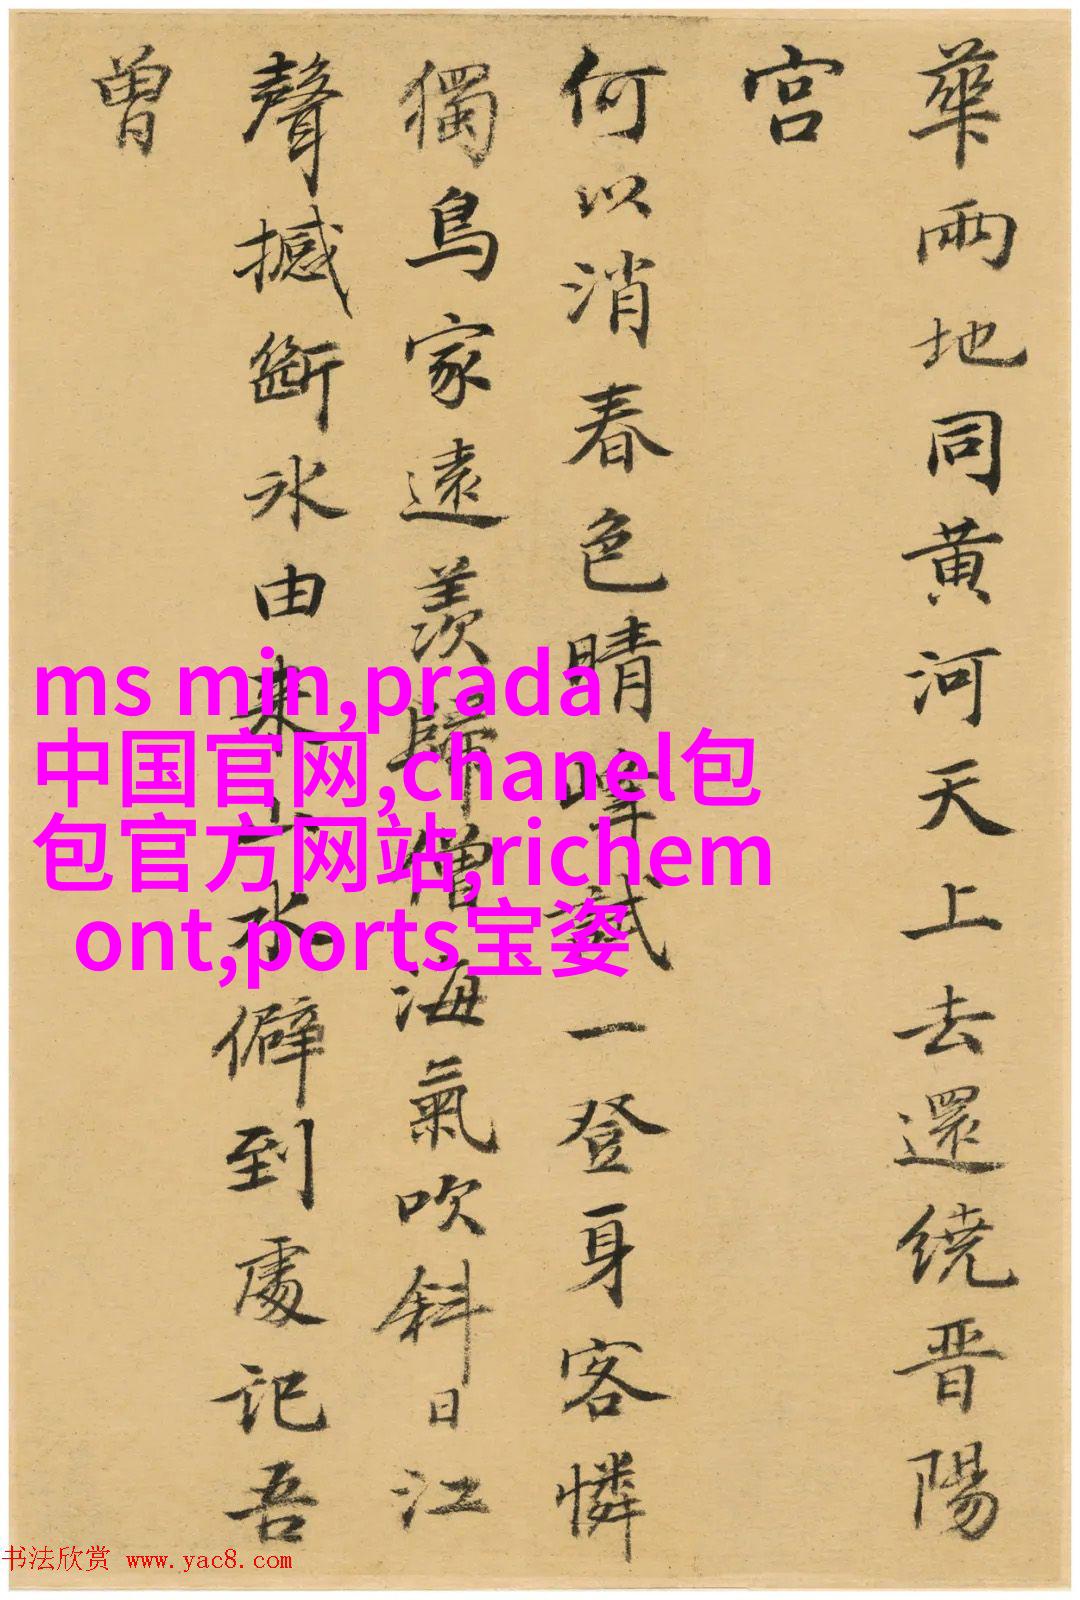 華兩地同黄河天上去還繞晋陽
宫
何以消春色晴峰試一登身客憐
獨鳥家遠羨歸僧海氣吹斜日江
聲撼斷氷由来山水僻到處记吾
曾
ms min,prada
中国官网,chanel包
包官方网站,richem
ont,ports宝姿
书法欣赏 www.yac8.com